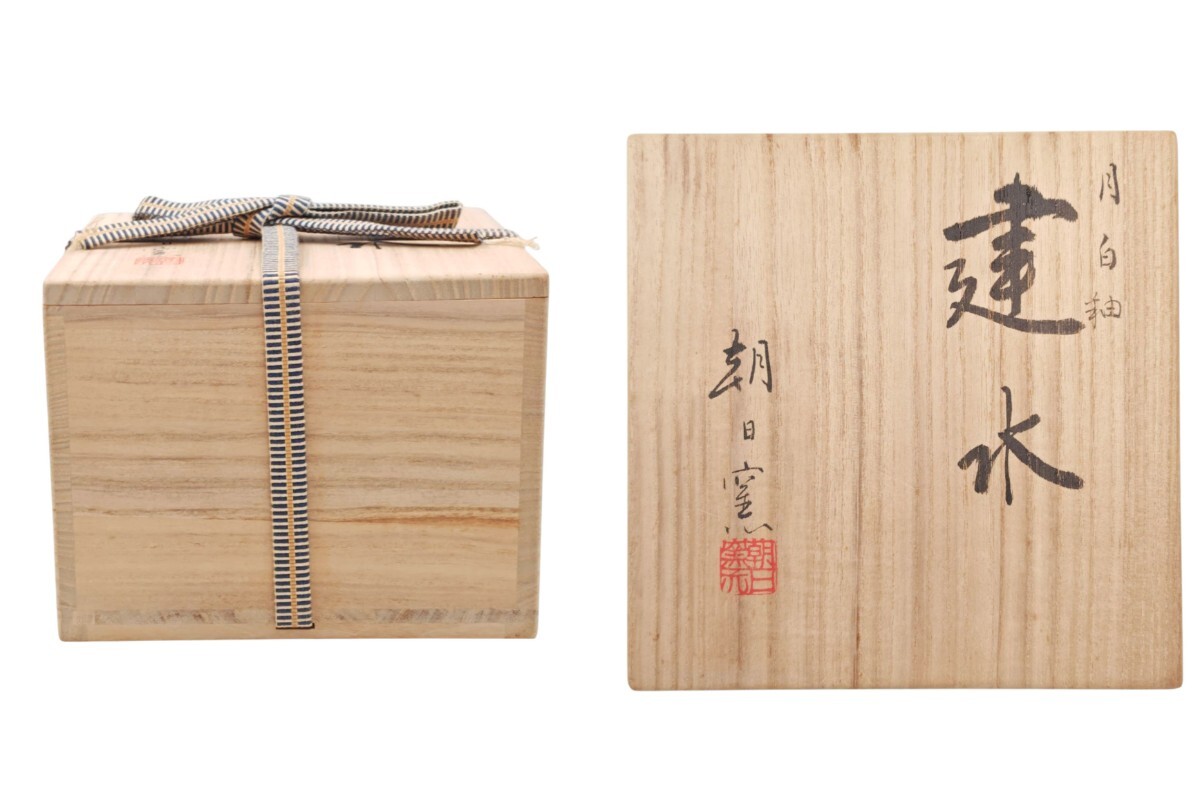 月白釉
建水
朝日窯
朝日窯元